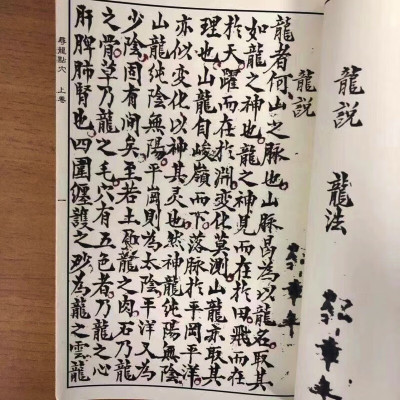 龍説
龍法
龍説
龍者何山之脉也山脉曷為以龍名取其
如龍之神也龍之神見而在於田飛而在
於天躍而在於淵變化莫測山龍亦取其
理也山龍自峻嶺而下落脉於平岡平洋
亦似變化以神其灵也然神龍純陽無陰
山龍純陰無陽平崗則為太陰平洋又為
少陰固有間矣至若土龍之肉石乃龍
之骨草乃龍之毛穴有五色者乃龍之心
肝脾肺腎也四圍纏護之砂為龍之雲龍
尋龍點穴 上卷
一